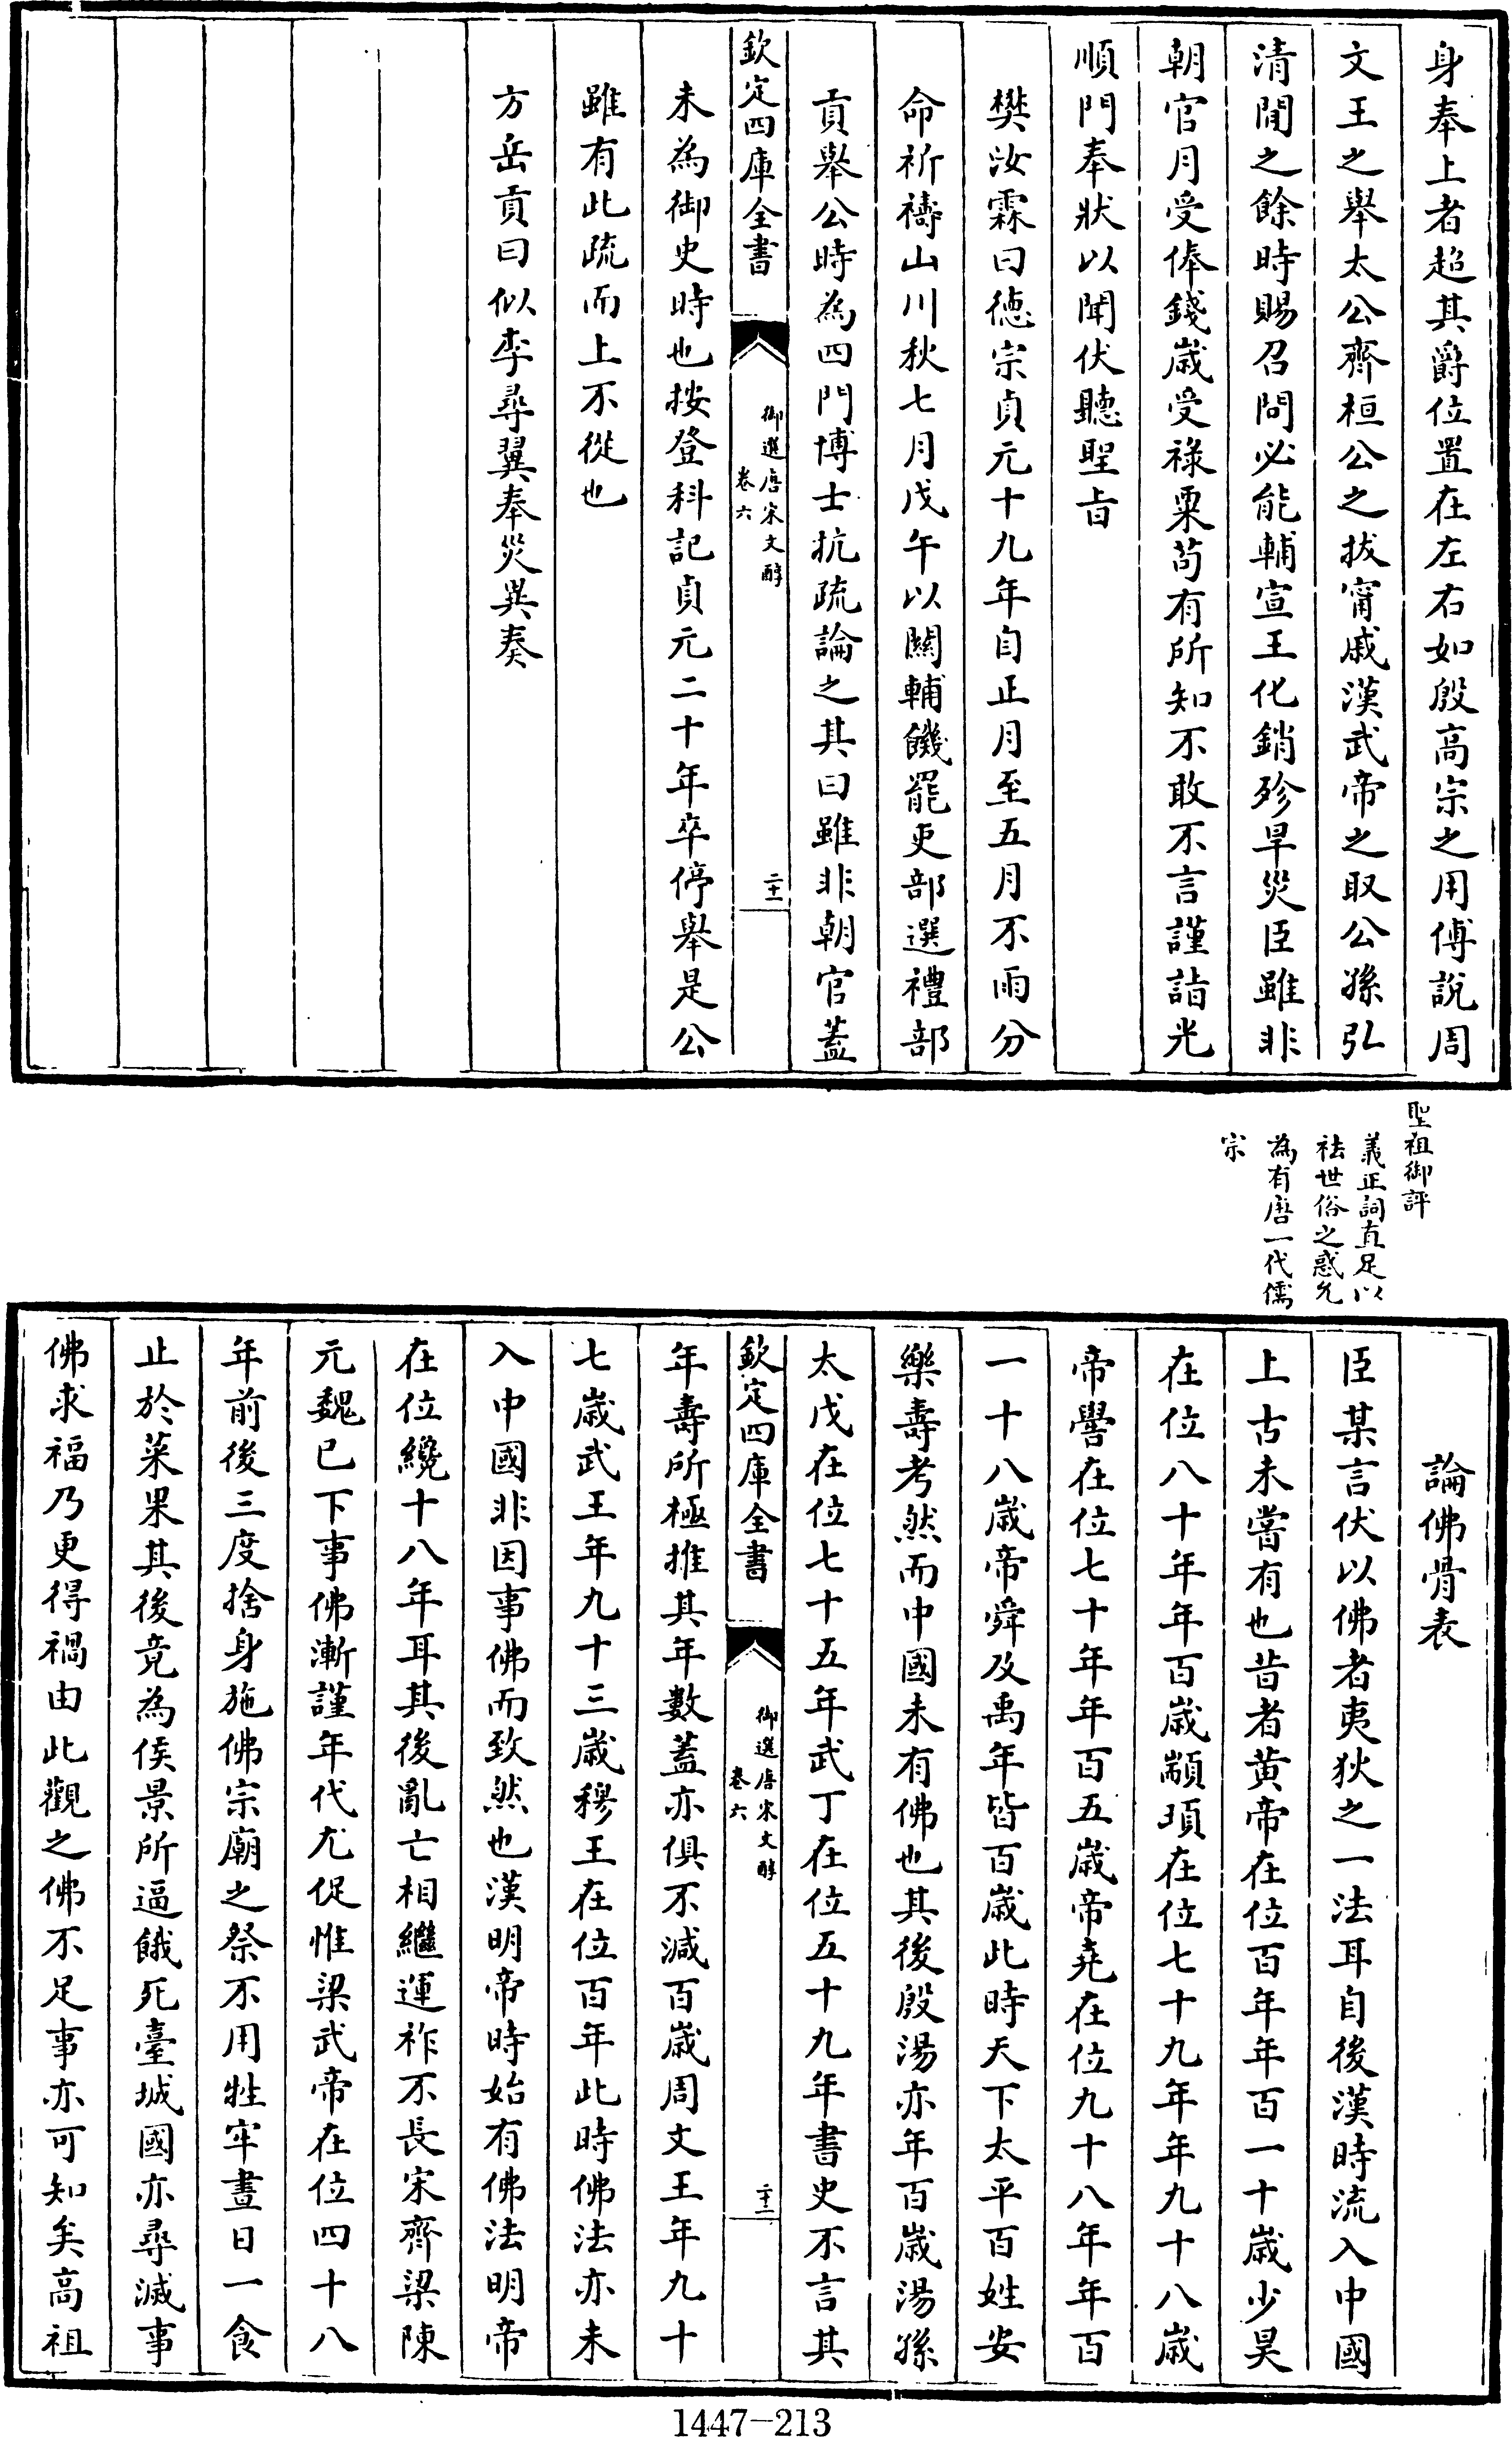 身奉上者超其爵位置在左右如殷高宗之用傅說周
文王之舉太公齊桓公之拔甯戚漢武帝之取公孫弘
清閒之餘時賜召問必能輔宣王化銷殄旱災臣雖非
朝官月受俸錢歲受祿粟苟有所知不敢不言謹詣光
順門奉狀以聞伏聽聖旨
樊汝霖曰德宗貞元十九年自正月至五月不雨分
命祈禱山川秋七月戊午以關輔饑罷吏部選禮部
貢舉公時為四門博士抗疏論之其曰雖非朝官蓋
欽定四庫全書
御選唐宋文醇
卷六
二十一
未為御史時也按登科記貞元二十年卒停舉是公
雖有此疏而上不從也
方岳貢曰似李尋翼奉災異奏
聖祖御評
義正詞直足以
祛世俗之惑允
為有唐一代儒
宗
論佛骨表
臣某言伏以佛者夷狄之一法耳自後漢時流入中國
上古未嘗有也昔者黃帝在位百年年百一十歲少昊
在位八十年年百歲顓頊在位七十九年年九十八歲
帝嚳在位七十年年百五歲帝堯在位九十八年年百
一十八歲帝舜及禹年皆百歲此時天下太平百姓安
樂壽考然而中國未有佛也其後殷湯亦年百歲湯孫
太戊在位七十五年武丁在位五十九年書史不言其
欽定四庫全書
御選唐宋文醇
卷六
二十二
年壽所極推其年數蓋亦俱不減百歲周文王年九十
七歲武王年九十三歲穆王在位百年此時佛法亦未
入中國非因事佛而致然也漢明帝時始有佛法明帝
在位纔十八年耳其後亂亡相繼運祚不長宋齊梁陳
元魏已下事佛漸謹年代尤促惟梁武帝在位四十八
年前後三度捨身施佛宗廟之祭不用牲牢晝日一食
止於菜果其後竟為侯景所逼餓死臺城國亦尋滅事
佛求福乃更得禍由此觀之佛不足事亦可知矣高祖
1447-213